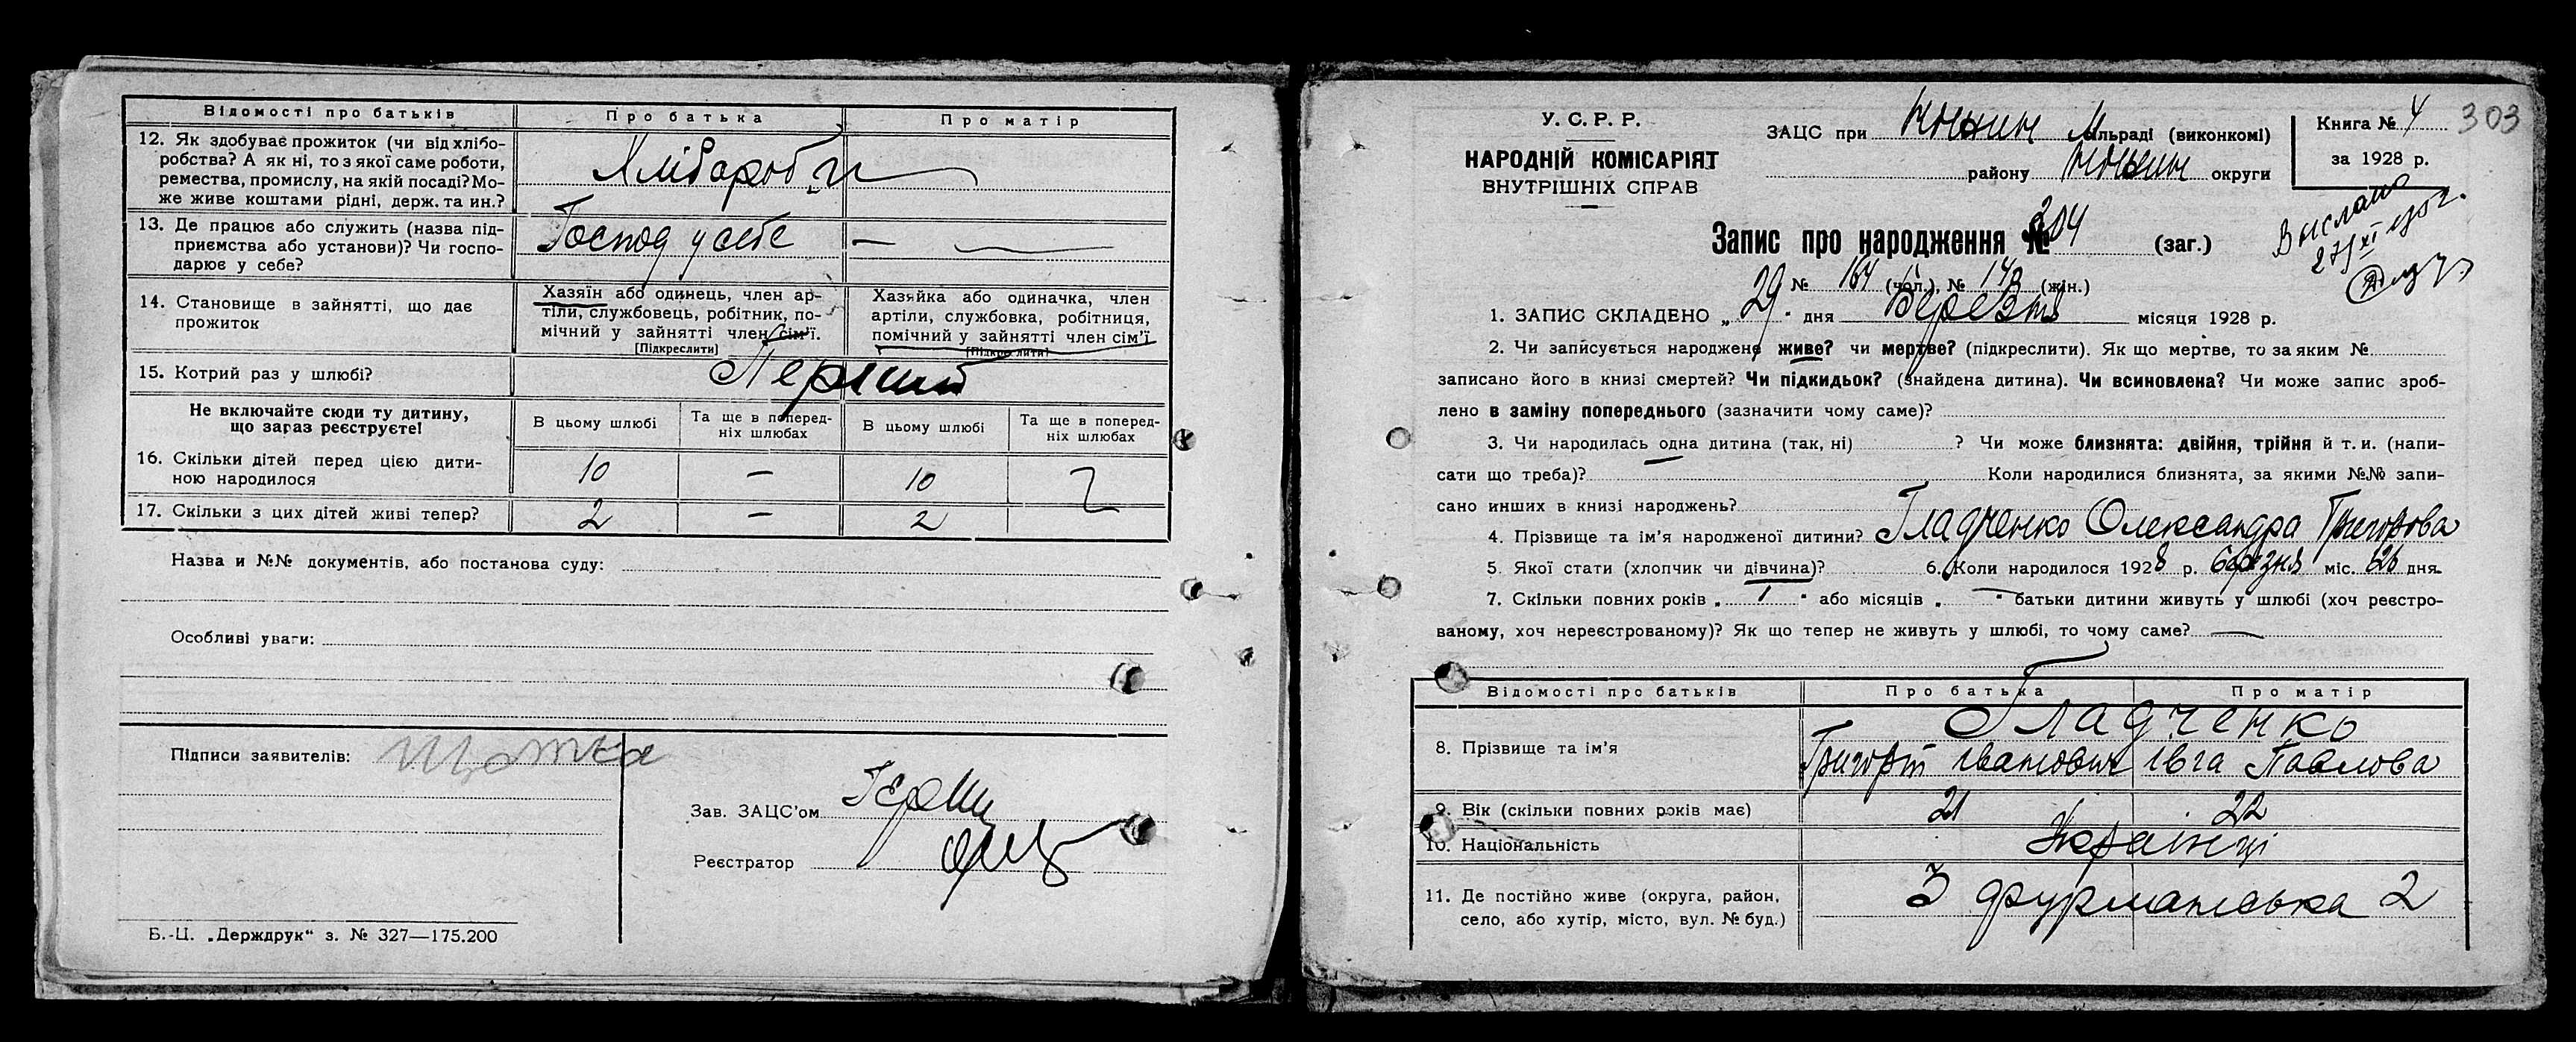 Відомості про батьків
Про батька
Про матір
12. Як здобуває прожиток (чи від хлібо-
робства? А як ні, то з якої саме роботи,
ремества, промислу, на якій посаді? Мо-
же живе коштами рідні, держ. та ин.?
Хлібороби
13. Де працює або служить (назва під-
приємства або установи)? Чи госпо-
дарює у себе?
Господ у себе —
14. Становище в зайнятті, що дає
прожиток
Хазяїн або одинець, член ар-
тіли, службовець, робітник, по-
мічний у зайнятті член сім'ї.
[Підкреслити]
Хазяйка або одиначка, член
артіли, службовка, робітниця,
помічний у зайнятті член сім'ї
[Підкреслити]
15. Котрий раз у шлюбі?
Перший
Не включайте сюди ту дитину,
що зараз реєструєте!
В цьому шлюбі
Та ще в поперед-
ніх шлюбах
В цьому шлюбі
Та ще в поперед-
ніх шлюбах
16. Скільки дітей перед цією дити-
ною народилося
10 — 10
17. Скільки з цих дітей живі тепер?
2 — 2
Назва и №№ документів, або постанова суду:
Особливі уваги:
Підписи заявителів:
Зав. ЗАЦС'ом
Реєстратор
Б.-Ц. „Держдрук" з. № 327—175.200
У. С. Р. Р.
НАРОДНІЙ КОМІСАРІЯТ
ВНУТРІШНІХ СПРАВ
ЗАЦС при льраді (виконкомі)
району округи
Книга № 4
за 1928 р.
303
Выслано
Запис про народження № 304 (заг.)
№ 164 (чол.), № 142 (жін.)
1. ЗАПИС СКЛАДЕНО „ 29 " дня Березня місяця 1928 р.
2. Чи записується народжене живе? чи мертве? (підкреслити). Як що мертве, то за яким №
записано його в книзі смертей? Чи підкидьок? (знайдена дитина). Чи всиновлена? Чи може запис зроб-
лено в заміну попереднього (зазначити чому саме)?
3. Чи народилась одна дитина (так, ні) ? Чи може близнята: двійня, трійня й т. и. (напи-
сати що треба)? Коли народилися близнята, за якими №№ запи-
сано инших в книзі народжень?
4. Прізвище та ім'я народженої дитини? Гладченко Олександра Григорова
5. Якої стати (хлопчик чи дівчина)? 6. Коли народилося 1928 р. березня міс. 26 дня.
7. Скільки повних років „ 1 " або місяців „ — " батьки дитини живуть у шлюбі (хоч реєстро-
ваному, хоч нереєстрованому)? Як що тепер не живуть у шлюбі, то чому саме? —
Відомості про батьків
Про батька
Про матір
8. Прізвище та ім'я
Гладченко
Григорій Іванович Івга Павлова
9. Вік (скільки повних років має)
21 22
10. Національність
Українці
11. Де постійно живе (округа, район,
село, або хутір, місто, вул. № буд.)
3 фурманська 2